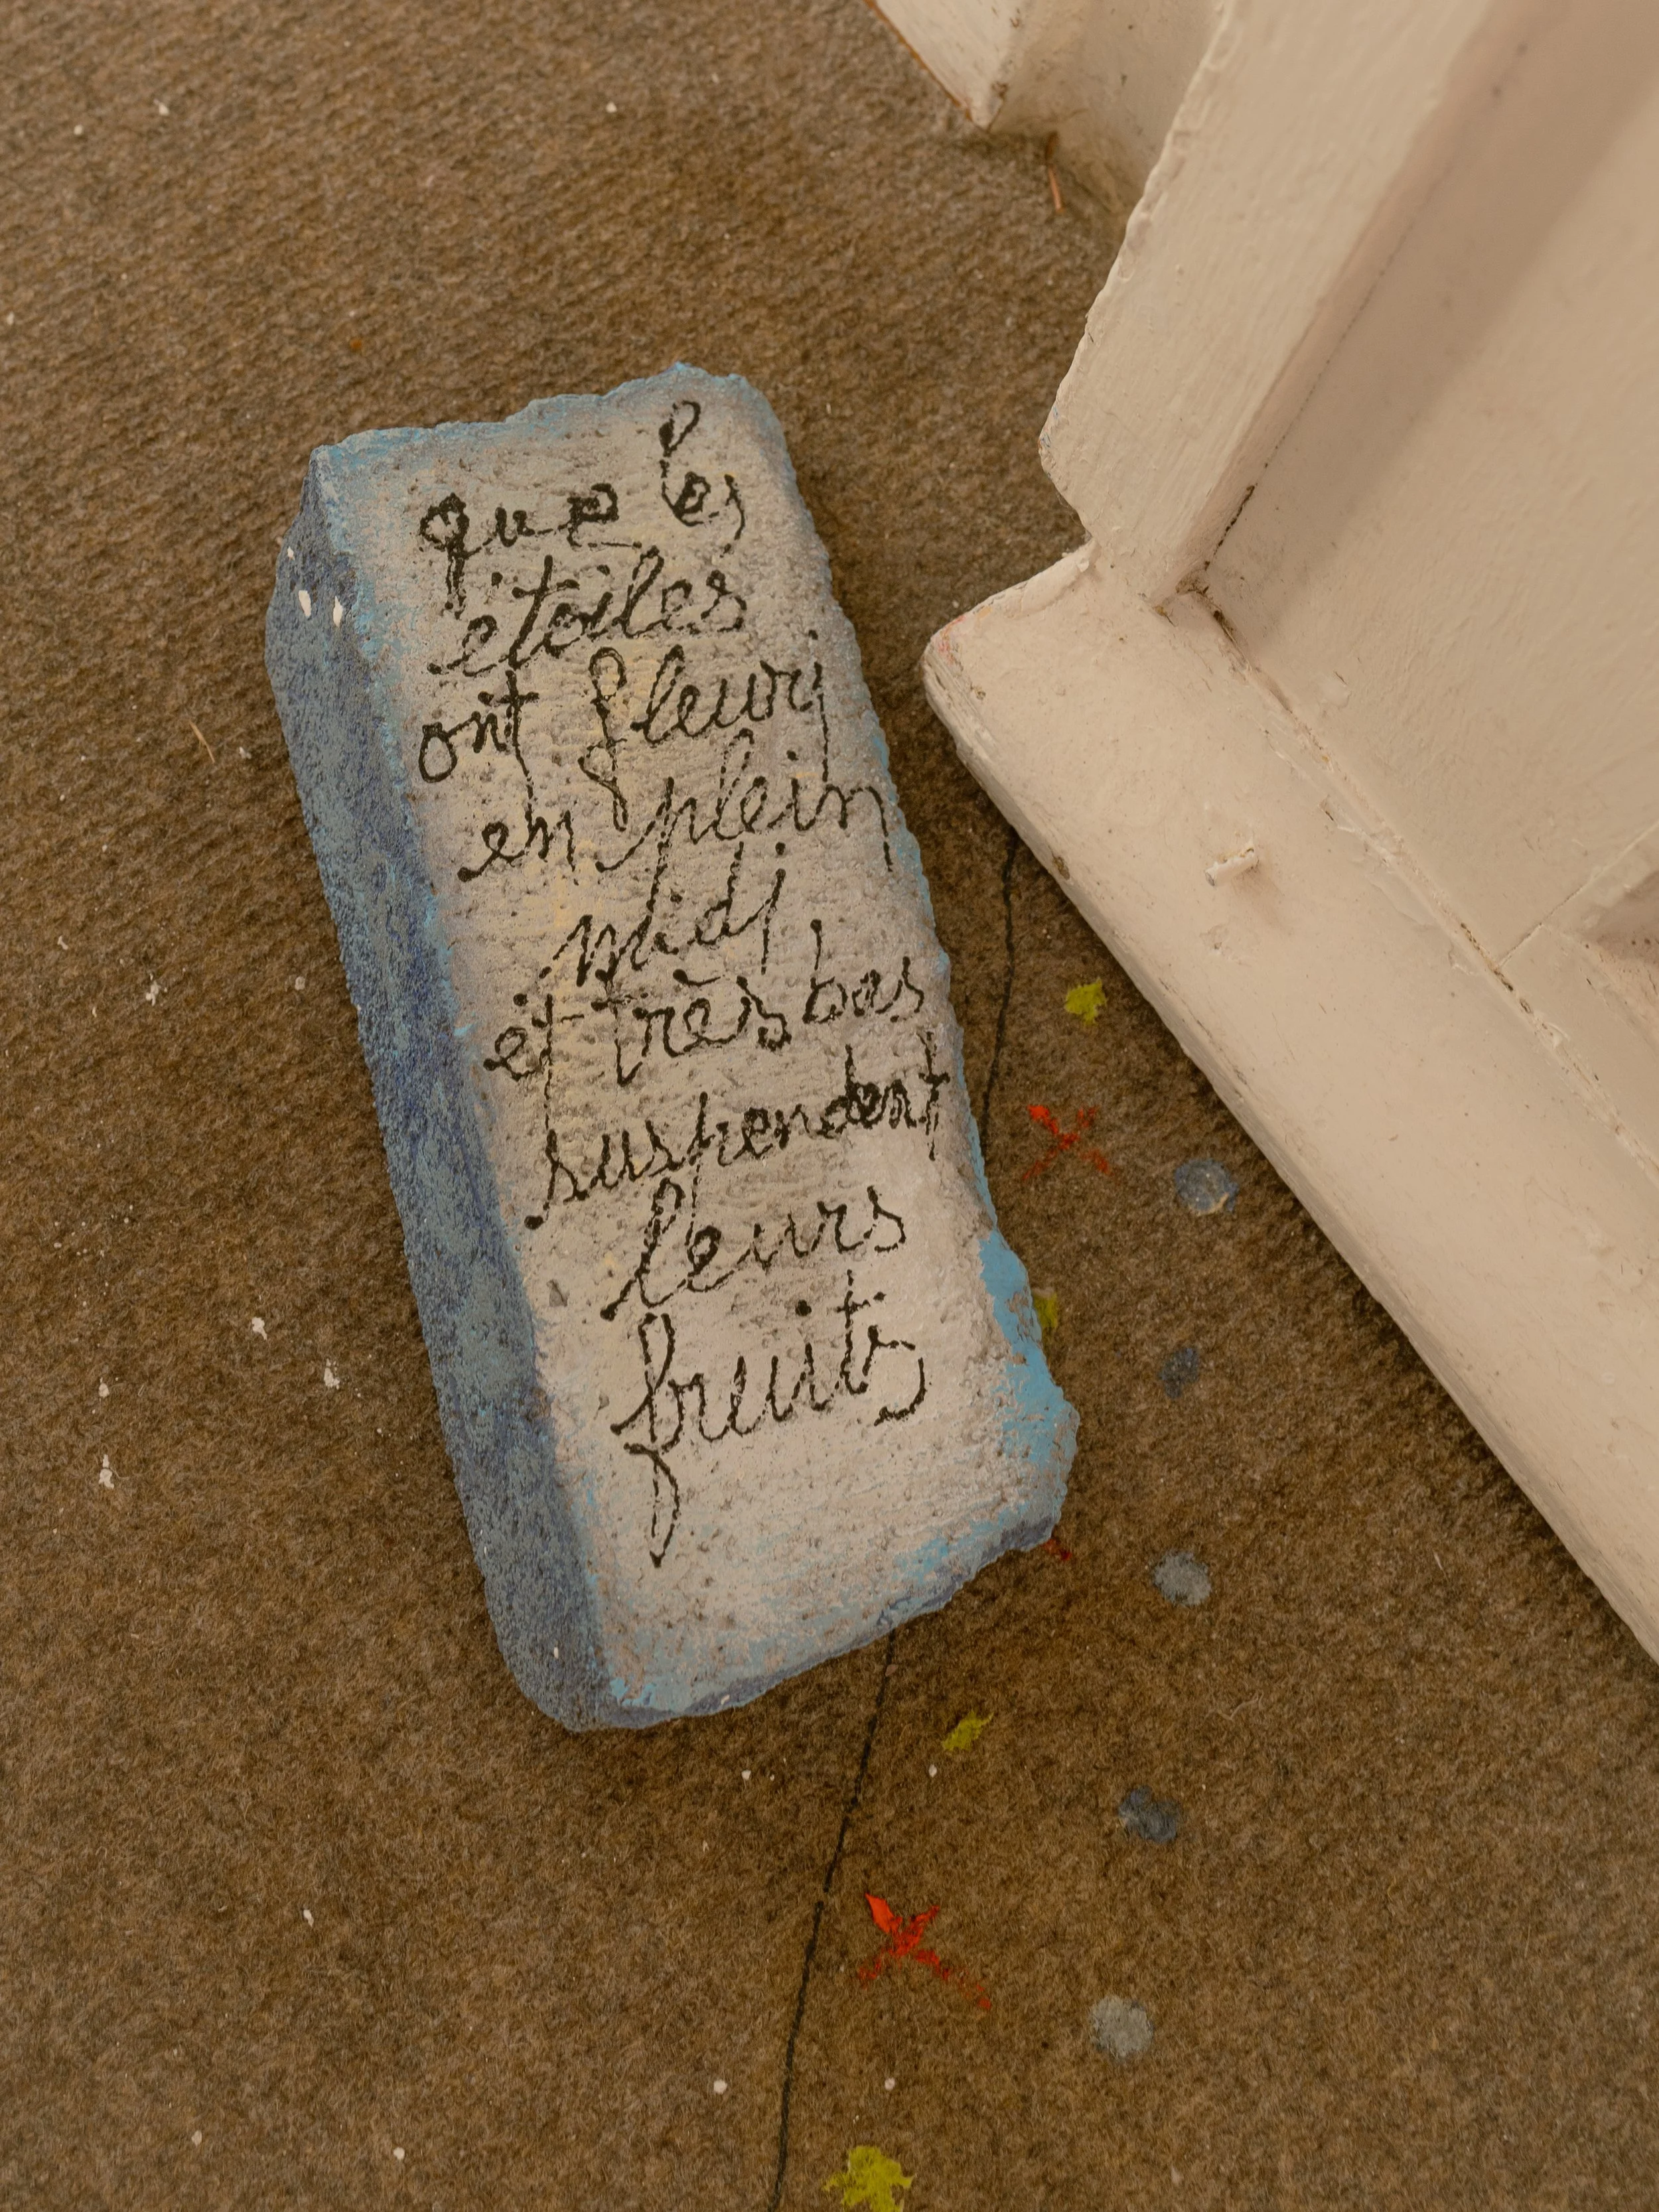 que les
étoiles
ont fleuri
en plein
midi
et très bas
suspendent
leurs
fruits